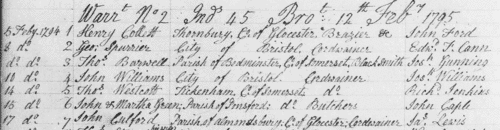 Warrt. No. 2 Ind. 45 Brot. 12th Feby. 1795
5 Feby. 1794 1 Henry Collett Thornbury, C. of Glocester Brazier &c John Ford
8 do. 2 Geo. Spurrier City of Bristol Cordwainer Edwd. T. Cann
do. do. 3 Thos. Barwell Parish of Bedminster, C. of Somerset, Black Smith Jos. Gunning
10 do. 4 John Williams City of Bristol Cordwainer Jos. Williams
14 do. 5 Thos. Westcott Tickenham, C. of Somerset do. Richd. Jenkins
15 do. 6 John & Martha Green; Parish of Dyrsford: do. Butchers John Caple
17 do. 7 John Parish of Almondsbury; C. of Glocester; Cordwainer Jas. Lewis